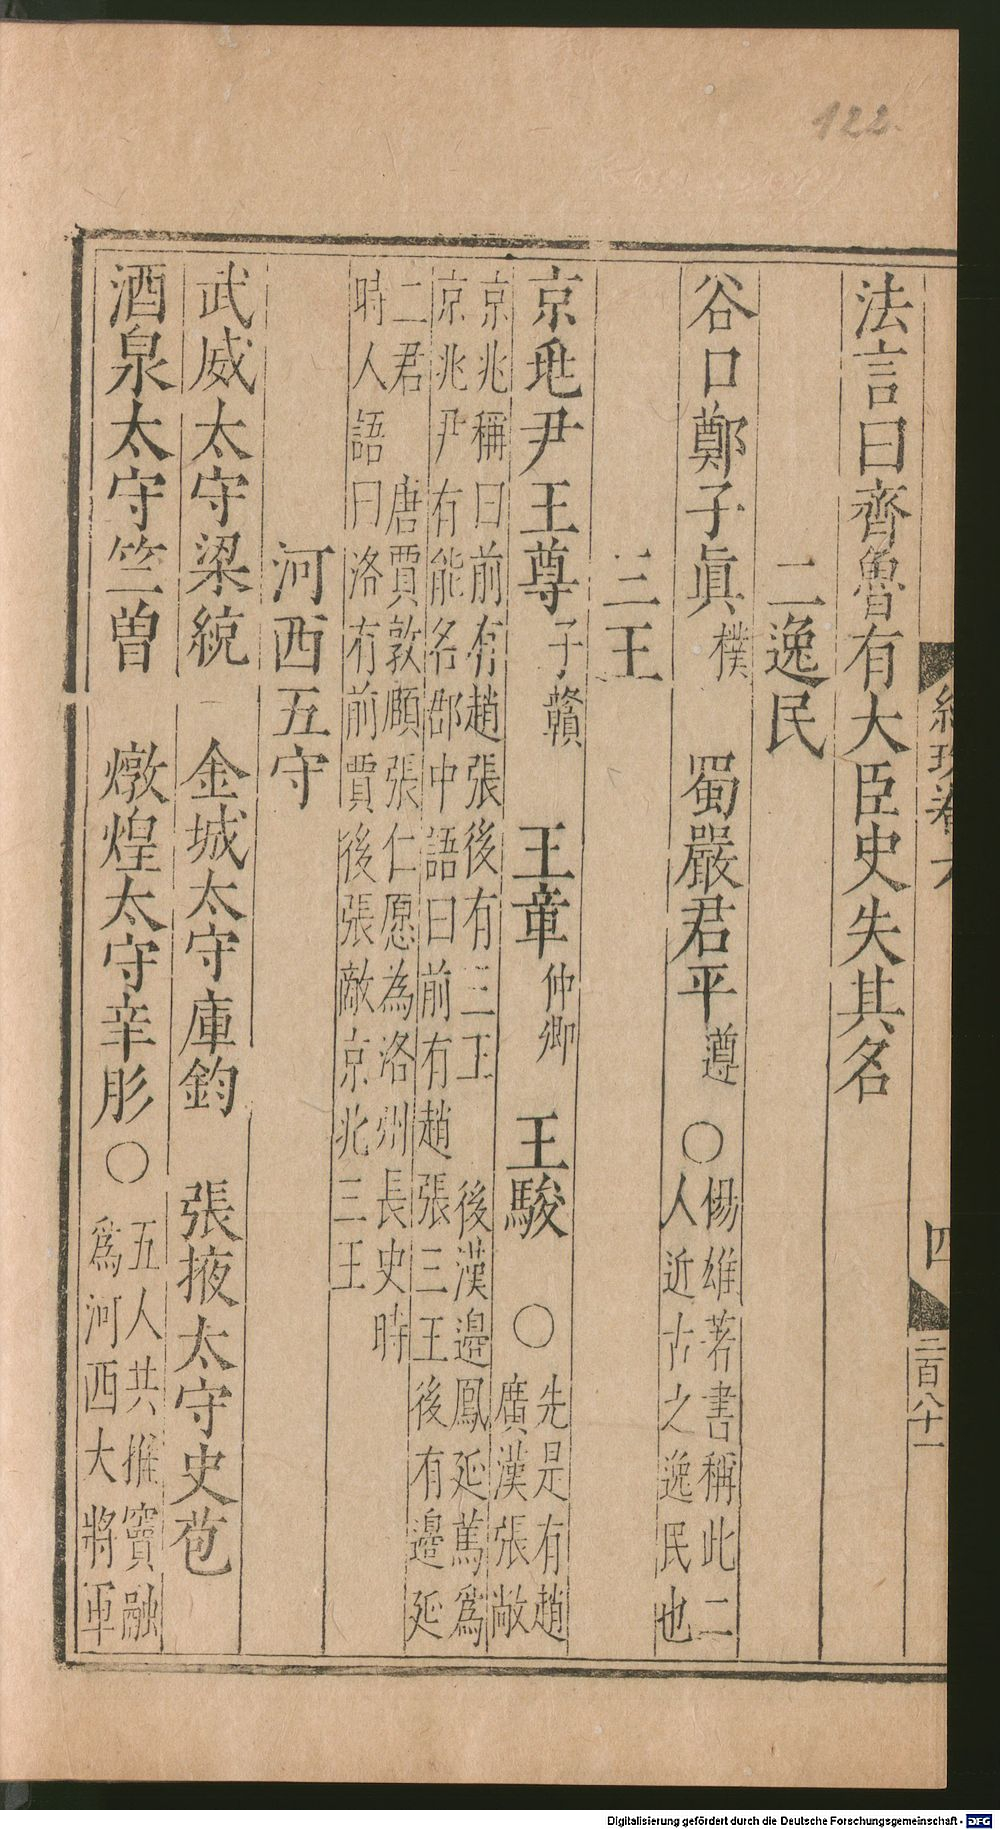 四
二百八十一
法言曰齊魯有大臣史失其名
二逸民
谷口鄭子眞樸　蜀嚴君平遵　○楊雄著書稱此二
人近古之逸民也
三王
京兆尹王尊子贛　王章仲卿　王駿　○先是有趙
廣漢張敞
京兆稱曰前有趙張後有三王　後漢邊鳳延篤爲
京兆尹有能名郡中語曰前有趙張三王後有邊延
二君　唐賈敦頤張仁愿為洛州長史時
時人語曰洛有前賈後張敵京北三王
河西五守
武威太守梁統　金城太守庫鈞　張掖太守史苞
酒泉太守竺曽　燉煌太守辛肜○五人共推竇融
爲河西大將軍
122.
Digitalisierung gefördert durch die Deutsche Forschungsgemeinschaft - DFG